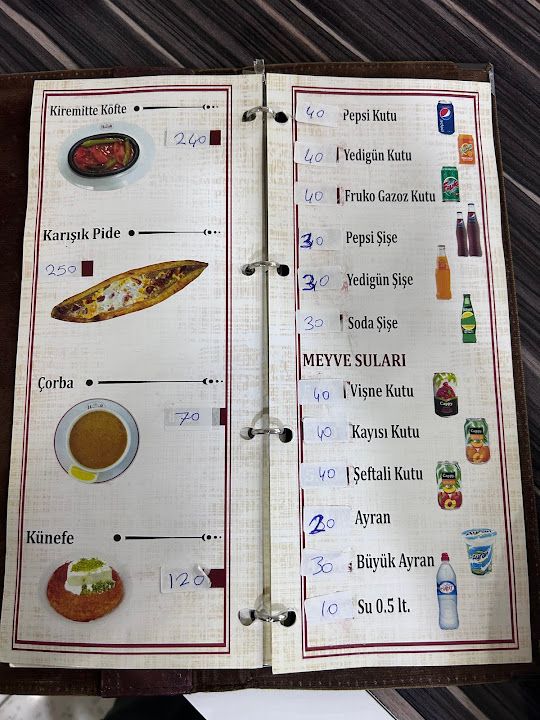 Kiremitte Köfte
240
Karışık Pide
250
Çorba
70
Künefe
120
40 Pepsi Kutu
40 Yedigün Kutu
40 Fruko Gazoz Kutu
30 Pepsi Şişe
30 Yedigün Şişe
30 Soda Şişe
MEYVE SULARI
40 Vişne Kutu
40 Kayısı Kutu
40 Şeftali Kutu
20 Ayran
30 Büyük Ayran
10 Su 0.5 lt.